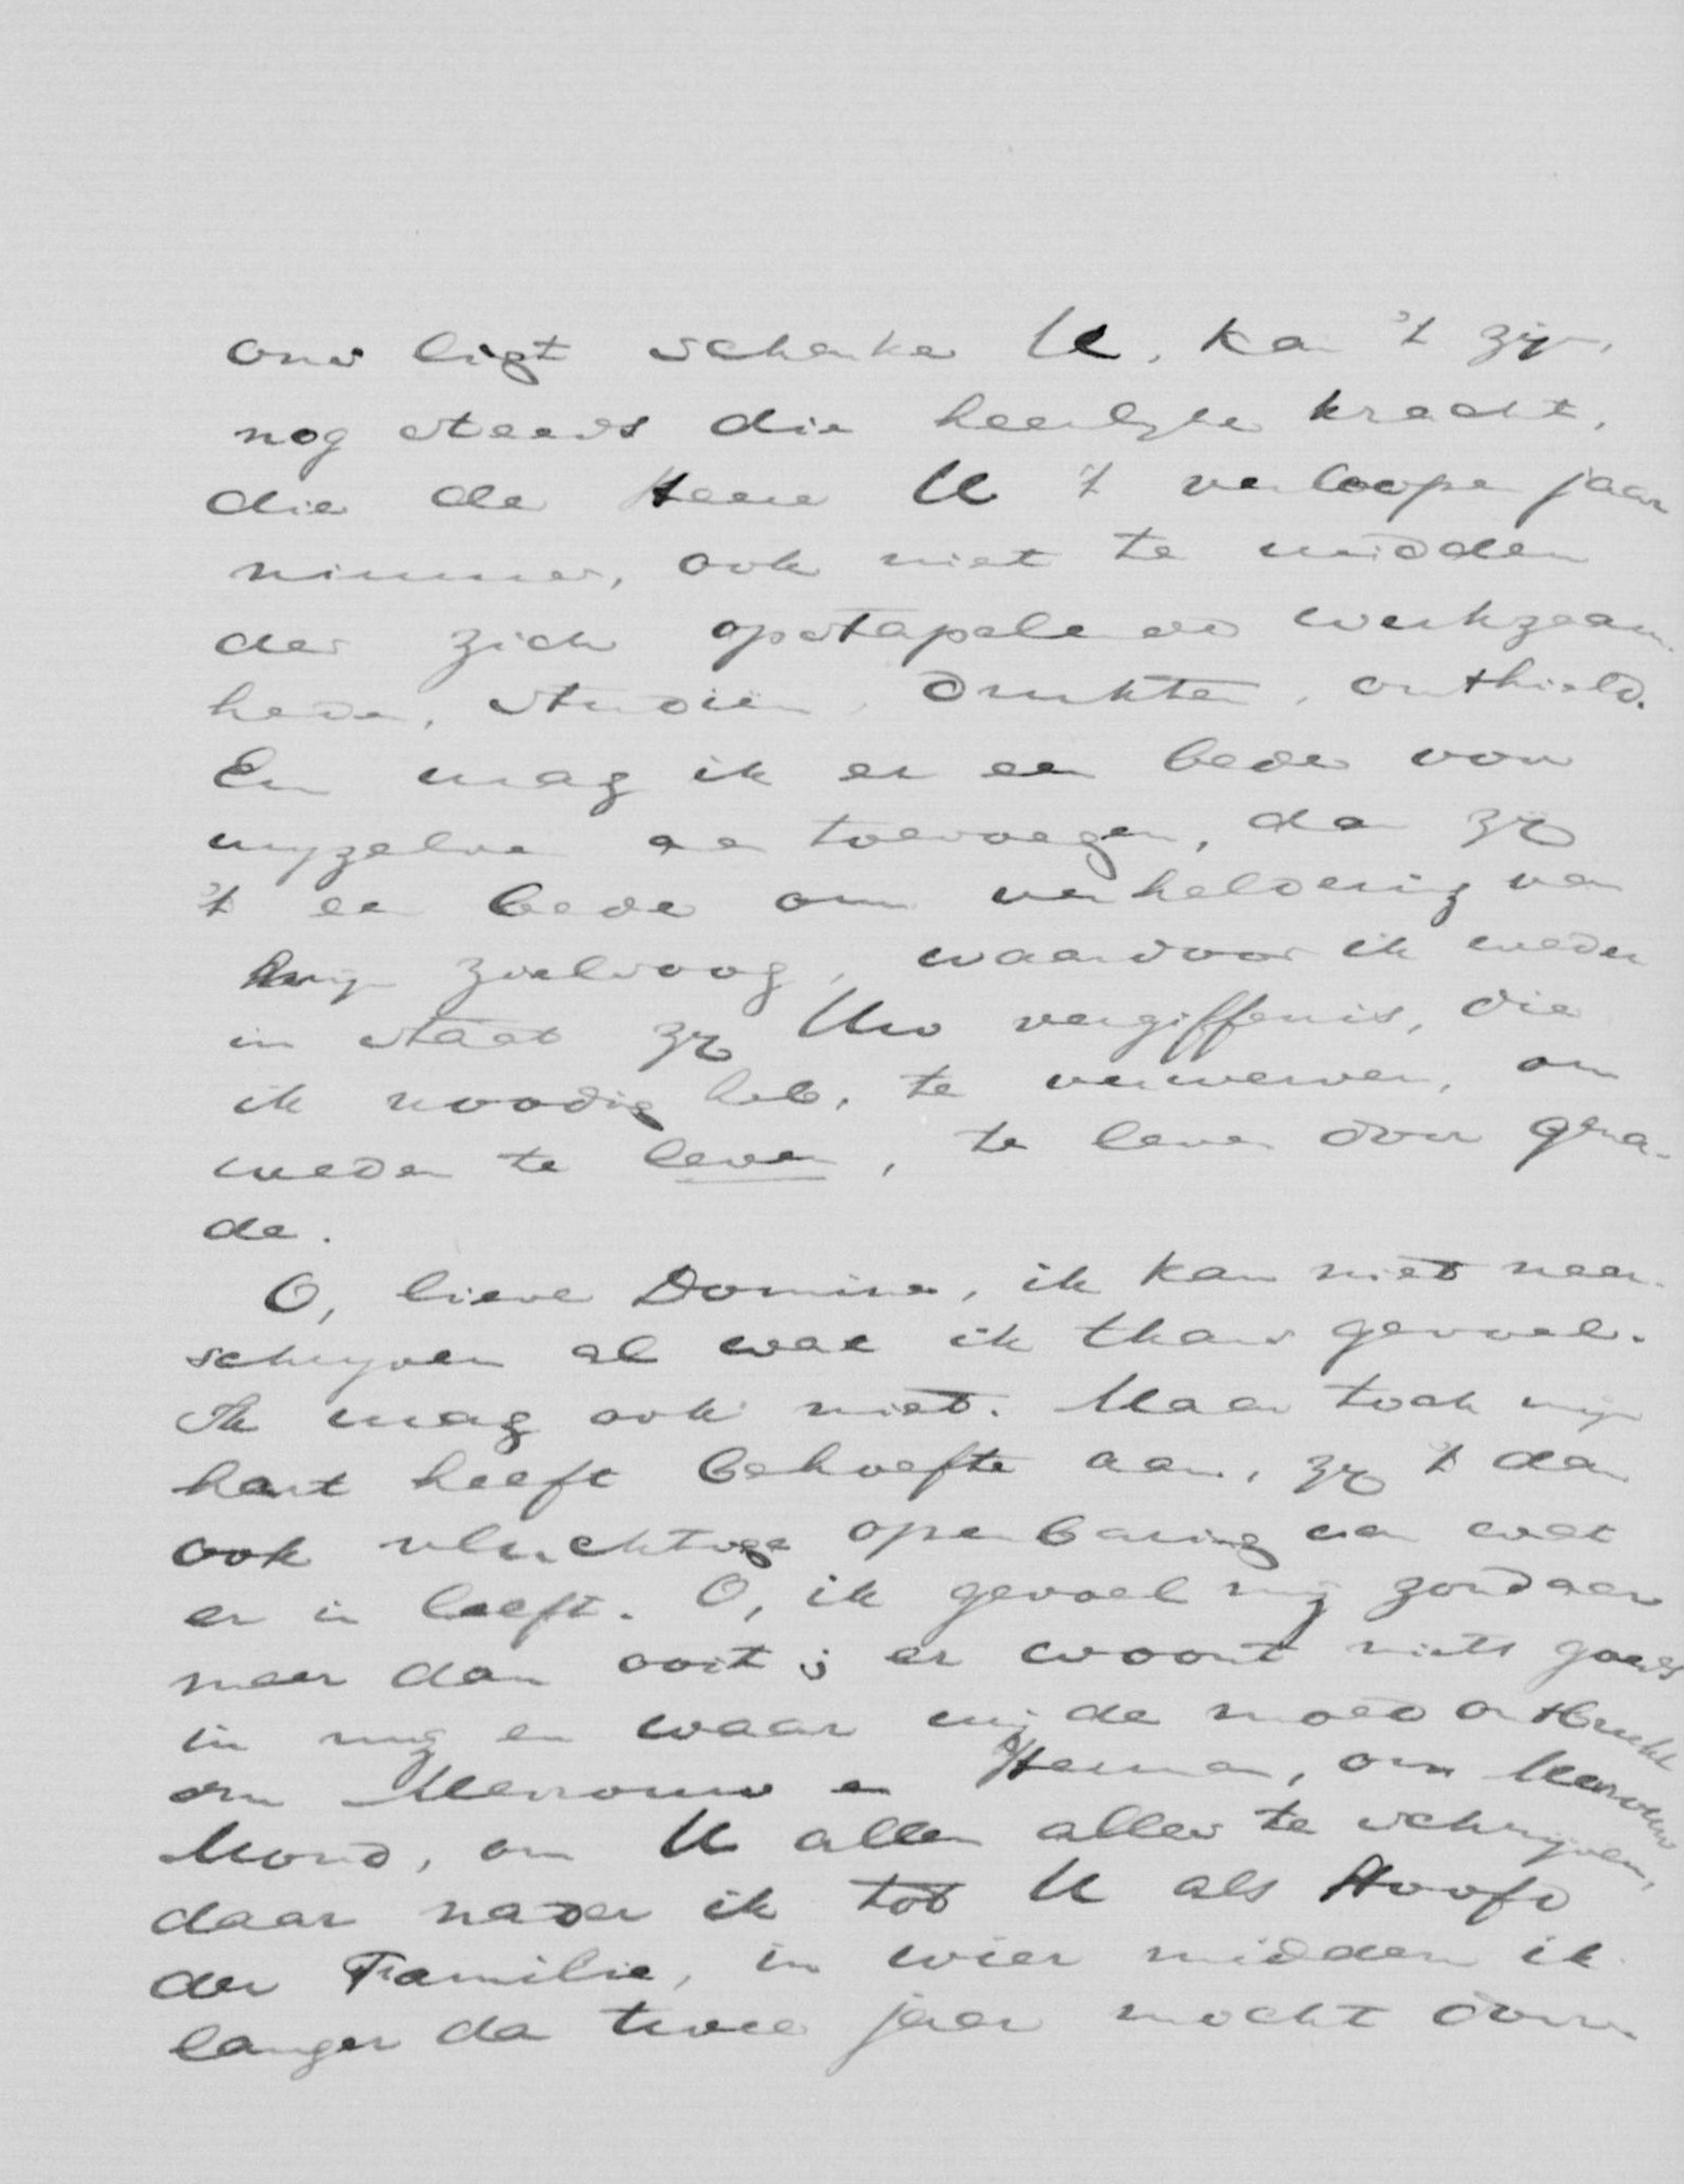 ons ligt schenke U, kan 't zijn,
nog steeds die heerlyke kracht,
die de Heere U 't verloopen jaar
nimmer, ook niet te midden
der zich opstapelende werkzaam-
heden, studiën, drukten, onthield.
En mag ik er een bede voor
myzelve aan toevoegen, dan zy
't een bede om verheldering van
myn zielsoog, waardoor ik weder
in staat zy Uw vergiffenis, die
ik noodig heb, te verwerven, om
weder te leven, te leven door gena-
de.
O, lieve Domine, ik kan niet neer-
schryven al wat ik thans gevoel.
Ik mag ook niet. Maar toch myn
hart heeft behoefte aan, zy 't dan
ook vluchtige openbaring van wat
er in leeft. O, ik gevoel my zondaar
meer dan ooit; er woont niets goeds
in my en waar my de moed ontbreekt
om Mevrouw en Herman, om Mevrouw
, om U allen alles te schryven,
daar nader ik tot U als Hoofd
der Familie, in wier midden ik
langer dan twee jaar mocht door-